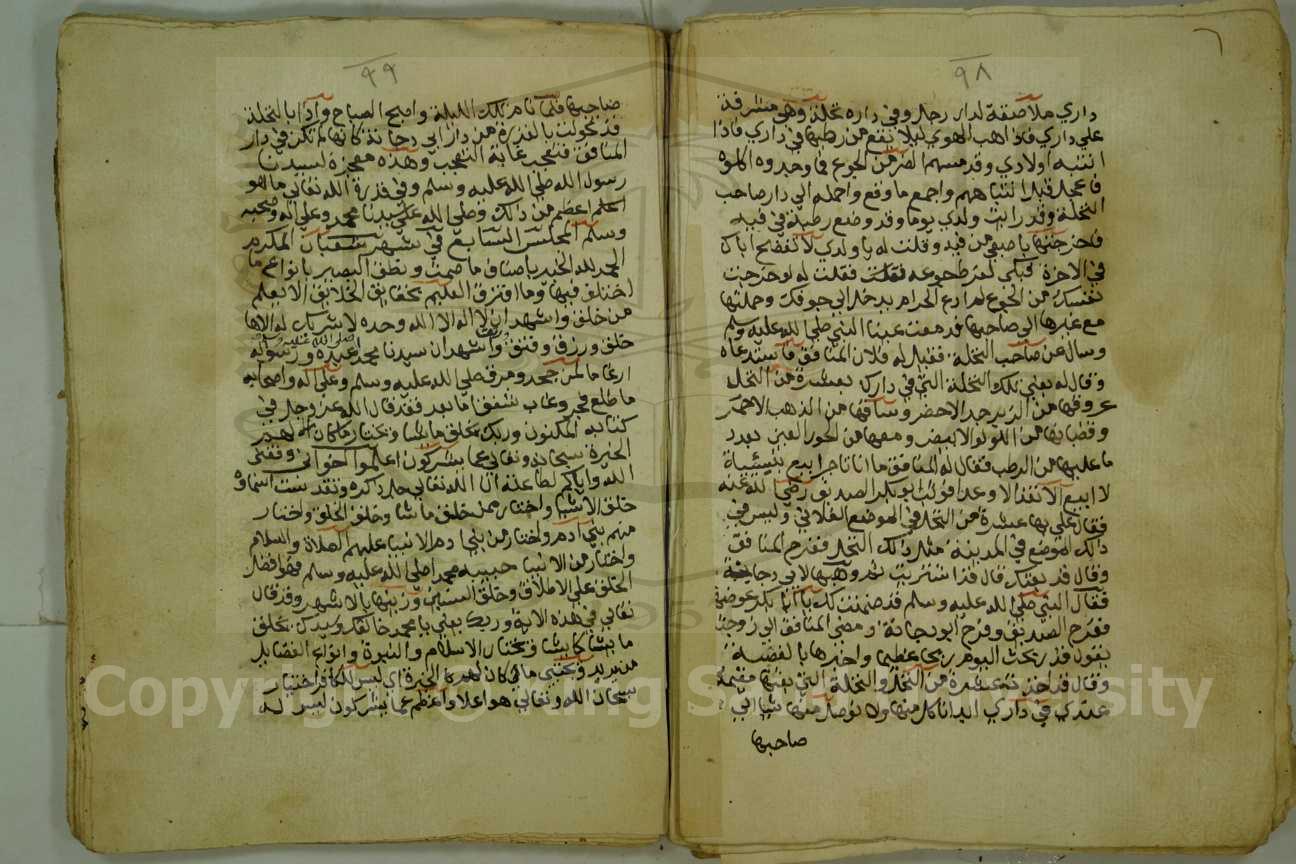 ٩٨
داري ملاصقة لدار رجل وفي داره نخلة وهي مشرفة
علي داري فاذا هب الهوي ليلا يقع من رطبها في داري فاذا
انتبه اولادي وقد مسهم الضر من الجوع فما وجدوه اكلوه
فاعجل قبل انتباههم واجمع ما وقع واحمله الي دار صاحب
النخلة وقد رايت ولدي يوما وقد وضع رطبة في فيه
فاخرجتها باصبعي من فيه وقلت له يا ولدي لا تفضح اباك
في الاخرة فبكي لفرط جوعه فقلت فقلت له لو خرجت
نفسك من الجوع لم ادع الحرام يدخل الي جوفك وحملتها
مع غيرها الي صاحبها فدمعت عينا النبي صلي الله عليه وسلم
وسال عن صاحب النخلة فقيل له فلان المنافق فاستدعاه
وقال له بعني تلك النخلة التي في دارك بعشرة من النخل
عروقها من الزبرجد الاخضر وساقها من الذهب الاحمر
وقضبانها من اللولو الابيض ومعها من الحور العين بعدد
ما عليها من الرطب فقال له المنافق ما انا تاجر ابيع بنسيئة
لا ابيع الا نقدا لا وعدا فوثب ابو بكر الصديق رضي الله عنه
فقال علي بها عشرة من النخل في الموضع الفلاني وليس في
ذلك الموضع في المدينة مثل ذلك النخل ففرح المنافق
وقال قد بعتك قال قد اشتريت ثم وهبها لابي دجانة
فقال النبي صلي الله عليه وسلم قد ضمنت لك يا ابا بكر عوضها
ففرح الصديق وفرح ابو دجانة ومضي المنافق الي زوجته
يقول قد ربحت اليوم ربحا عظيما واخبرها بالقضية
وقال قد اخذت عشرة من النخل والنخلة التي بعتها مقيمة
عندي في داري ابدا ناكل منها ولا نوصل منها شيا الي
صاحبها
٩٩
صاحبها فلما نام تلك الليلة واصبح الصباح واذا بالنخلة
قد تحولت بالقدرة من دار ابي دجانة كانها لم تكن في دار
المنافق فتعجب غاية التعجب وهذه معجزة لسيدنا
رسول الله صلي الله عليه وسلم وفي قدرة الله تعالي ما هو
اعظم من ذلك وصلي الله علي سيدنا محمد وعلي اله وصحبه
وسلم المجلس السابع في شهر شعبان المكرم
الحمد لله الخبير باصناف ما صمت ونطق البصير بانواع ما
اختلف فيها وما افترق العليم بحقايق الخلايق الا يعلم
من خلق واشهد ان لا اله الا الله وحده لا شريك له الاها
خلق ورزق وفتق ورتق واشهد ان سيدنا محمدا عبده ورسوله
صلي الله عليه وسلم
ارغاما لمن جحد ومرق صلي الله عليه وسلم وعلي اله واصحابه
ما طلع فجر وغاب شفق اما بعد فقد قال الله عز وجل في
كتابه المكنون وربك يخلق ما يشا ويختار ما كان لهم
الخيرة سبحانه وتعالي عما يشركون اعلموا اخواني وفقني
الله واياكم لطاعته ان الله تعالي جل ذكره وتقدست اسماوه
خلق الاشيا واختار ممن خلق ما شا وخلق الخلق واختار
منهم بني ادم واختار من بني ادم الانبيا عليهم الصلاة والسلام
واختار من الانبيا حبيبه محمدا صلي الله عليه وسلم فهو افضل
الخلق علي الاطلاق وخلق السنين وزينها بالاشهر وقد قال
تعالي في هذه الاية وربك يعني يا محمد خالقك وسيدك يخلق
ما يشا كما يشا ويختار الاسلام والنبوة وانواع الفضايل
من يريد ويجتبي ما كان لهم الخيرة اي ليس للكافر اختيار
سبحان الله وتعالي هو اعلا واعظم عما يشركون ليس له